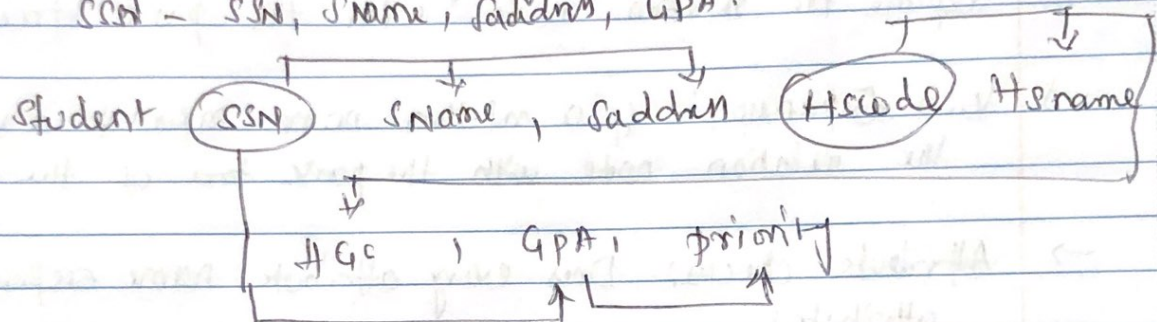 SSN - SSN, Sname, Saddress, GPA.
Student SSN SName, Saddress HScode HSname
HSc, GPA, priority